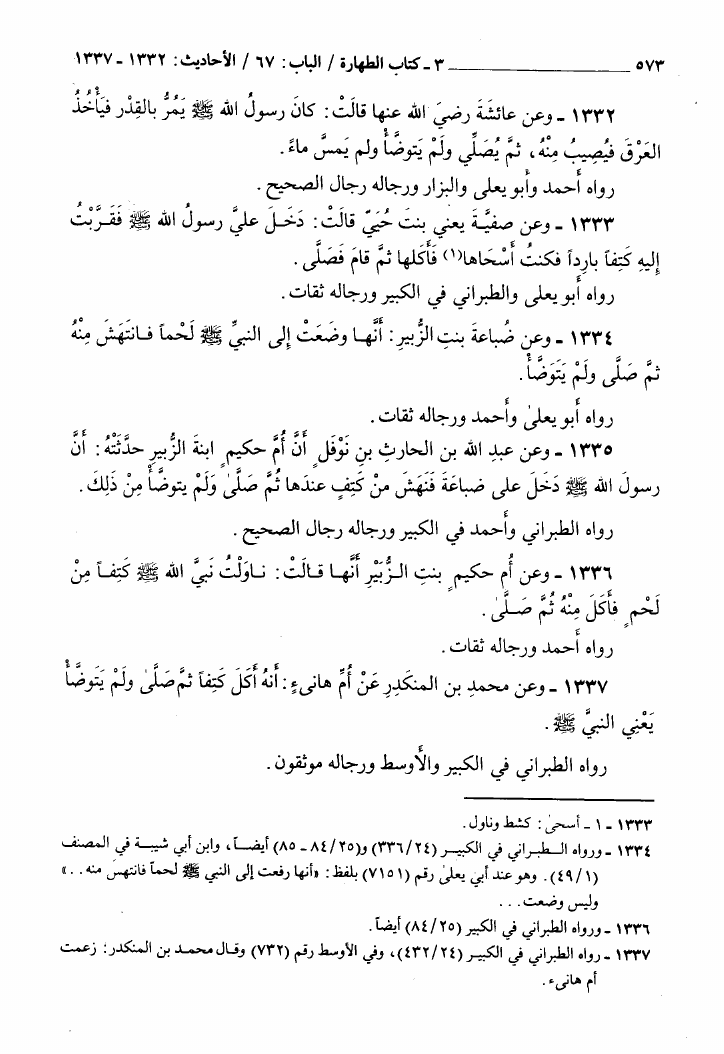 ٥٧٣ ــــــــ ٣ ـ كتاب الطهارة / الباب: ٦٧ / الأحاديث: ١٣٣٢ ـ ١٣٣٧
١٣٣٢ ـ وعن عائشَةَ رضيَ الله عنها قالَتْ: كانَ رسولُ الله ﷺ يَمُرُّ بالقِدْر فيَأْخُذُ
العَرْقَ فيُصِيبُ مِنْهُ، ثمَّ يُصَلِّي ولَمْ يَتوضَّأْ ولم يَمسَّ ماءً.
رواه أحمد وأبو يعلى والبزار ورجاله رجال الصحيح.
١٣٣٣ ـ وعن صفيَّةَ يعني بنتَ حُيَيّ قالَتْ: دَخَلَ عليَّ رسولُ الله ﷺ فَقَرَّبْتُ
إليهِ كَتِفاً بارِداً فكنتُ أَسْحَاها(١) فَأَكلها ثمَّ قامَ فَصَلَّى.
رواه أبو يعلى والطبراني في الكبير ورجاله ثقات.
١٣٣٤ ـ وعن ضُباعَةَ بنتِ الزُّبيرِ: أَنَّها وضَعَتْ إلى النبيِّ ﷺ لَحْماً فانتَهَشَ مِنْهُ
ثمَّ صَلَّى ولَمْ يَتَوَضَّأْ.
رواه أبو يعلىٰ وأحمد ورجاله ثقات.
١٣٣٥ ـ وعن عبدِ الله بن الحارثِ بنِ نَوْفَلٍ أَنَّ أُمَّ حكيمٍ ابنةَ الزُّبيرِ حدَّثَتْهُ: أَنَّ
رسولَ الله ﷺ دَخَلَ على ضباعَةَ فَنَهَشَ منْ كَتِفٍ عندَها ثُمَّ صَلَّىٰ وَلَمْ يتوضَّأْ مِنْ ذَلِكَ.
رواه الطبراني وأحمد في الكبير ورجاله رجال الصحيح.
١٣٣٦ ـ وعن أُم حكيمٍ بنتِ الزُّبَيْرِ أَنَّها قالَتْ: ناوَلْتُ نَبيَّ الله ﷺ كَتِفاً مِنْ
لَحْمٍ فأَكَلَ مِنْهُ ثُمَّ صَلَّىٰ.
رواه أحمد ورجاله ثقات.
١٣٣٧ ـ وعن محمدِ بن المنكَدِرِ عَنْ أُمِّ هانىءٍ: أَنهُ أَكَلَ كَتِفاً ثمَّ صَلَّىٰ ولَمْ يَتَوضَّأْ
يَعْنِي النبيَّ ﷺ.
رواه الطبراني في الكبير والأوسط ورجاله موثقون.
١٣٣٣ ـ ١ ـ أسحىٰ: كشط وناول.
١٣٣٤ ـ ورواه الطبراني في الكبير (٣٣٦/٢٤) و(٨٤/٢٥ ـ ٨٥) أيضاً، وابن أبي شيبة في المصنف
(٤٩/١). وهو عند أبي يعلىٰ رقم (٧١٥١) بلفظ: «أنها رفعت إلى النبي ﷺ لحماً فانتهس منه..»
وليس وضعت...
١٣٣٦ ـ ورواه الطبراني في الكبير (٨٤/٢٥) أيضاً.
١٣٣٧ ـ رواه الطبراني في الكبير (٤٣٢/٢٤)، وفي الأوسط رقم (٧٣٢) وقال محمد بن المنكدر: زعمت
أم هانىء.